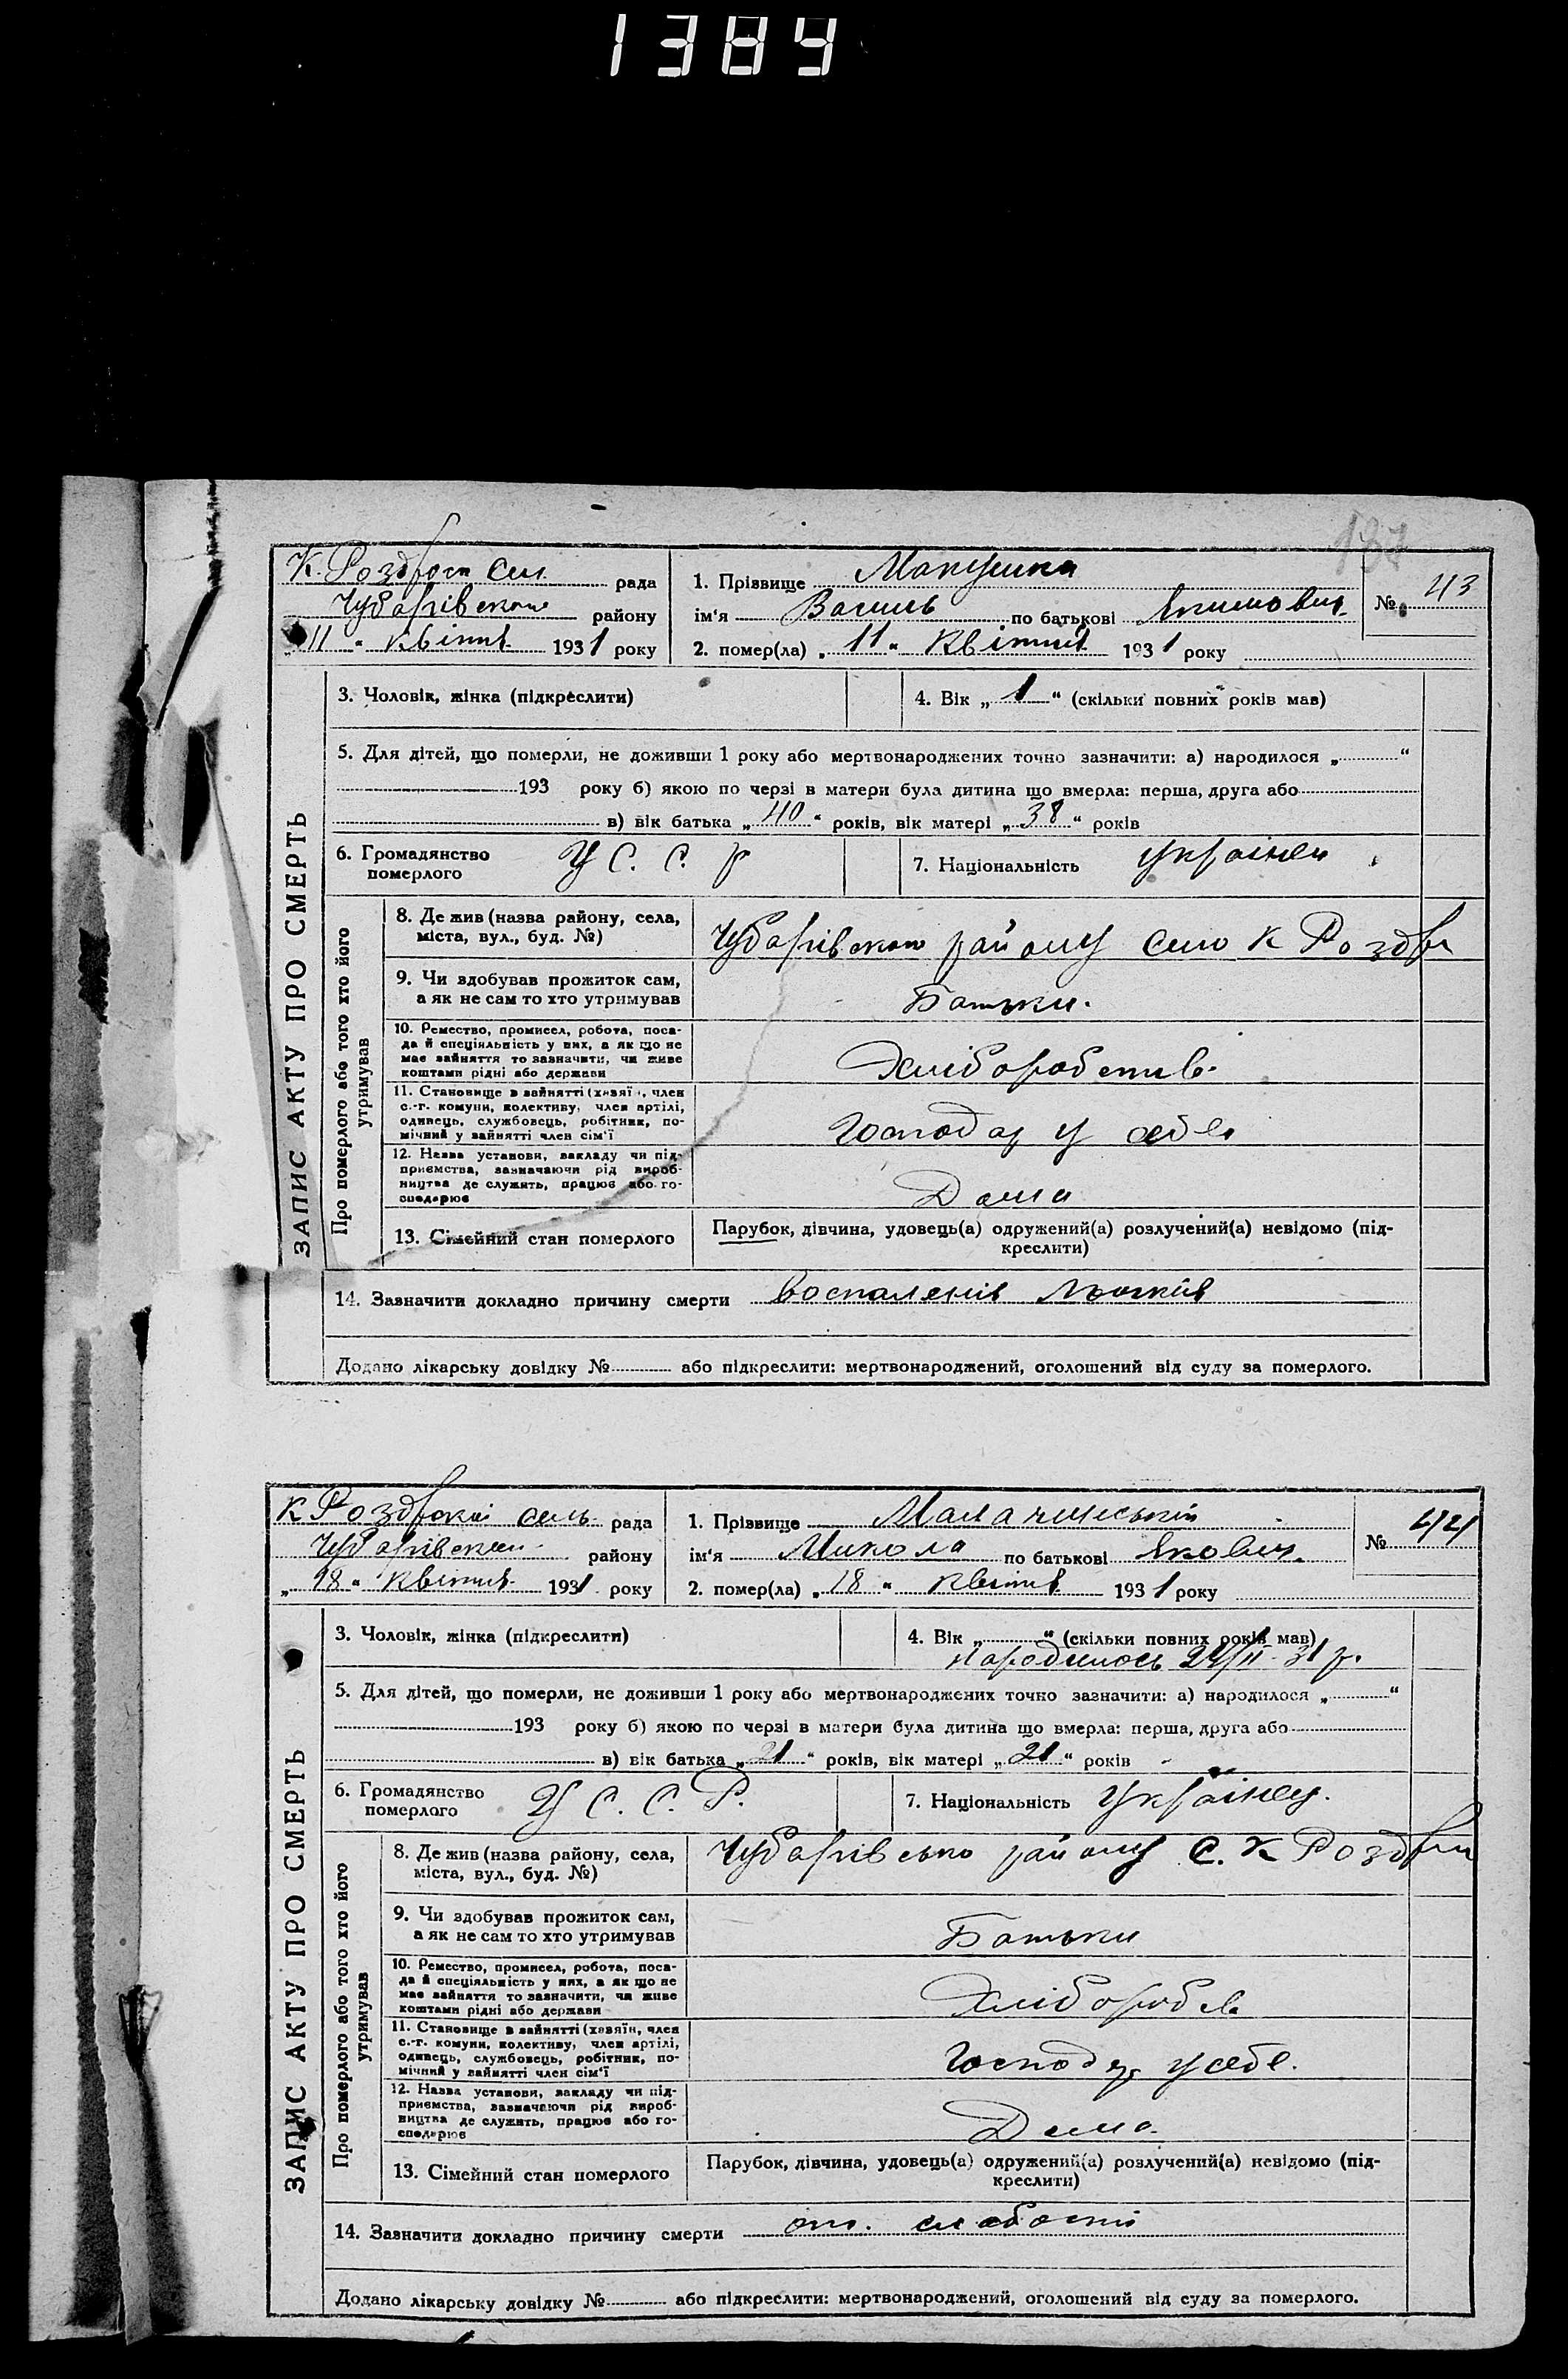 1384
132
К. Роздорск сил. рада
Чубарівского району
„11“ квітня 1931 року
1. Прізвище Макушка
ім'я Василь по батькові Якимович
№ 43
2. помер(ла) „11“ Квітня 1931 року
ЗАПИС АКТУ ПРО СМЕРТЬ
3. Чоловік, жінка (підкреслити)
4. Вік „1“ (скільки повних років мав)
5. Для дітей, що померли, не доживши 1 року або мертвонароджених точно зазначити: а) народилося „ “
193 року б) якою по черзі в матери була дитина що вмерла: перша, друга або
в) вік батька „40“ років, вік матері „38“ років
6. Громадянство
померлого
У С. С. Р
7. Національність українец
Про померлого або того хто його
утримував
8. Де жив (назва району, села,
міста, вул., буд. №)
Чубарівского району село К Роздри
9. Чи здобував прожиток сам,
а як не сам то хто утримував
Батьки.
10. Ремество, промисел, робота, поса-
да й спеціяльність у них, а як що не
має зайняття то зазначити, чи живе
коштами рідні або держави
11. Становище в зайнятті (хазяїн, член
с.-г. комуни, колективу, член артілі,
одинець, службовець, робітник, по-
мічний у зайнятті член сім'ї
Господар у себе
12. Назва установи, закладу чи під-
приємства, зазначаючи рід вироб-
ництва де служить, працює або го-
сподарює
Дома
13. Сімейний стан померлого
Парубок, дівчина, удовець(а) одружений(а) розлучений(а) невідомо (під-
креслити)
14. Зазначити докладно причину смерти воспаленія льогків
Додано лікарську довідку № або підкреслити: мертвонароджений, оголошений від суду за померлого.
К Роздрскої сель. рада
Чубарівского району
„18“ квітня 1931 року
1. Прізвище
ім'я Микола по батькові Якович.
№ 44
2. помер(ла) „18“ квітня 1931 року
ЗАПИС АКТУ ПРО СМЕРТЬ
3. Чоловік, жінка (підкреслити)
4. Вік „ “ (скільки повних років мав)
народилось 24/II 31 р.
5. Для дітей, що померли, не доживши 1 року або мертвонароджених точно зазначити: а) народилося „ “
193 року б) якою по черзі в матери була дитина що вмерла: перша, друга або
в) вік батька „21“ років, вік матері „21“ років
6. Громадянство
померлого
У С. С. Р.
7. Національність Українец.
Про померлого або того хто його
утримував
8. Де жив (назва району, села,
міста, вул., буд. №)
Чубарівсько району С. К Роздри
9. Чи здобував прожиток сам,
а як не сам то хто утримував
Батьки
10. Ремество, промисел, робота, поса-
да й спеціяльність у них, а як що не
має зайняття то зазначити, чи живе
коштами рідні або держави
Хлібороб
11. Становище в зайнятті (хазяїн, член
с.-г. комуни, колективу, член артілі,
одинець, службовець, робітник, по-
мічний у зайнятті член сім'ї
Господар у себе.
12. Назва установи, закладу чи під-
приємства, зазначаючи рід вироб-
ництва де служить, працює або го-
сподарює
Дома.
13. Сімейний стан померлого
Парубок, дівчина, удовець(а) одружений(а) розлучений(а) невідомо (під-
креслити)
14. Зазначити докладно причину смерти от. слабости
Додано лікарську довідку № або підкреслити: мертвонароджений, оголошений від суду за померлого.